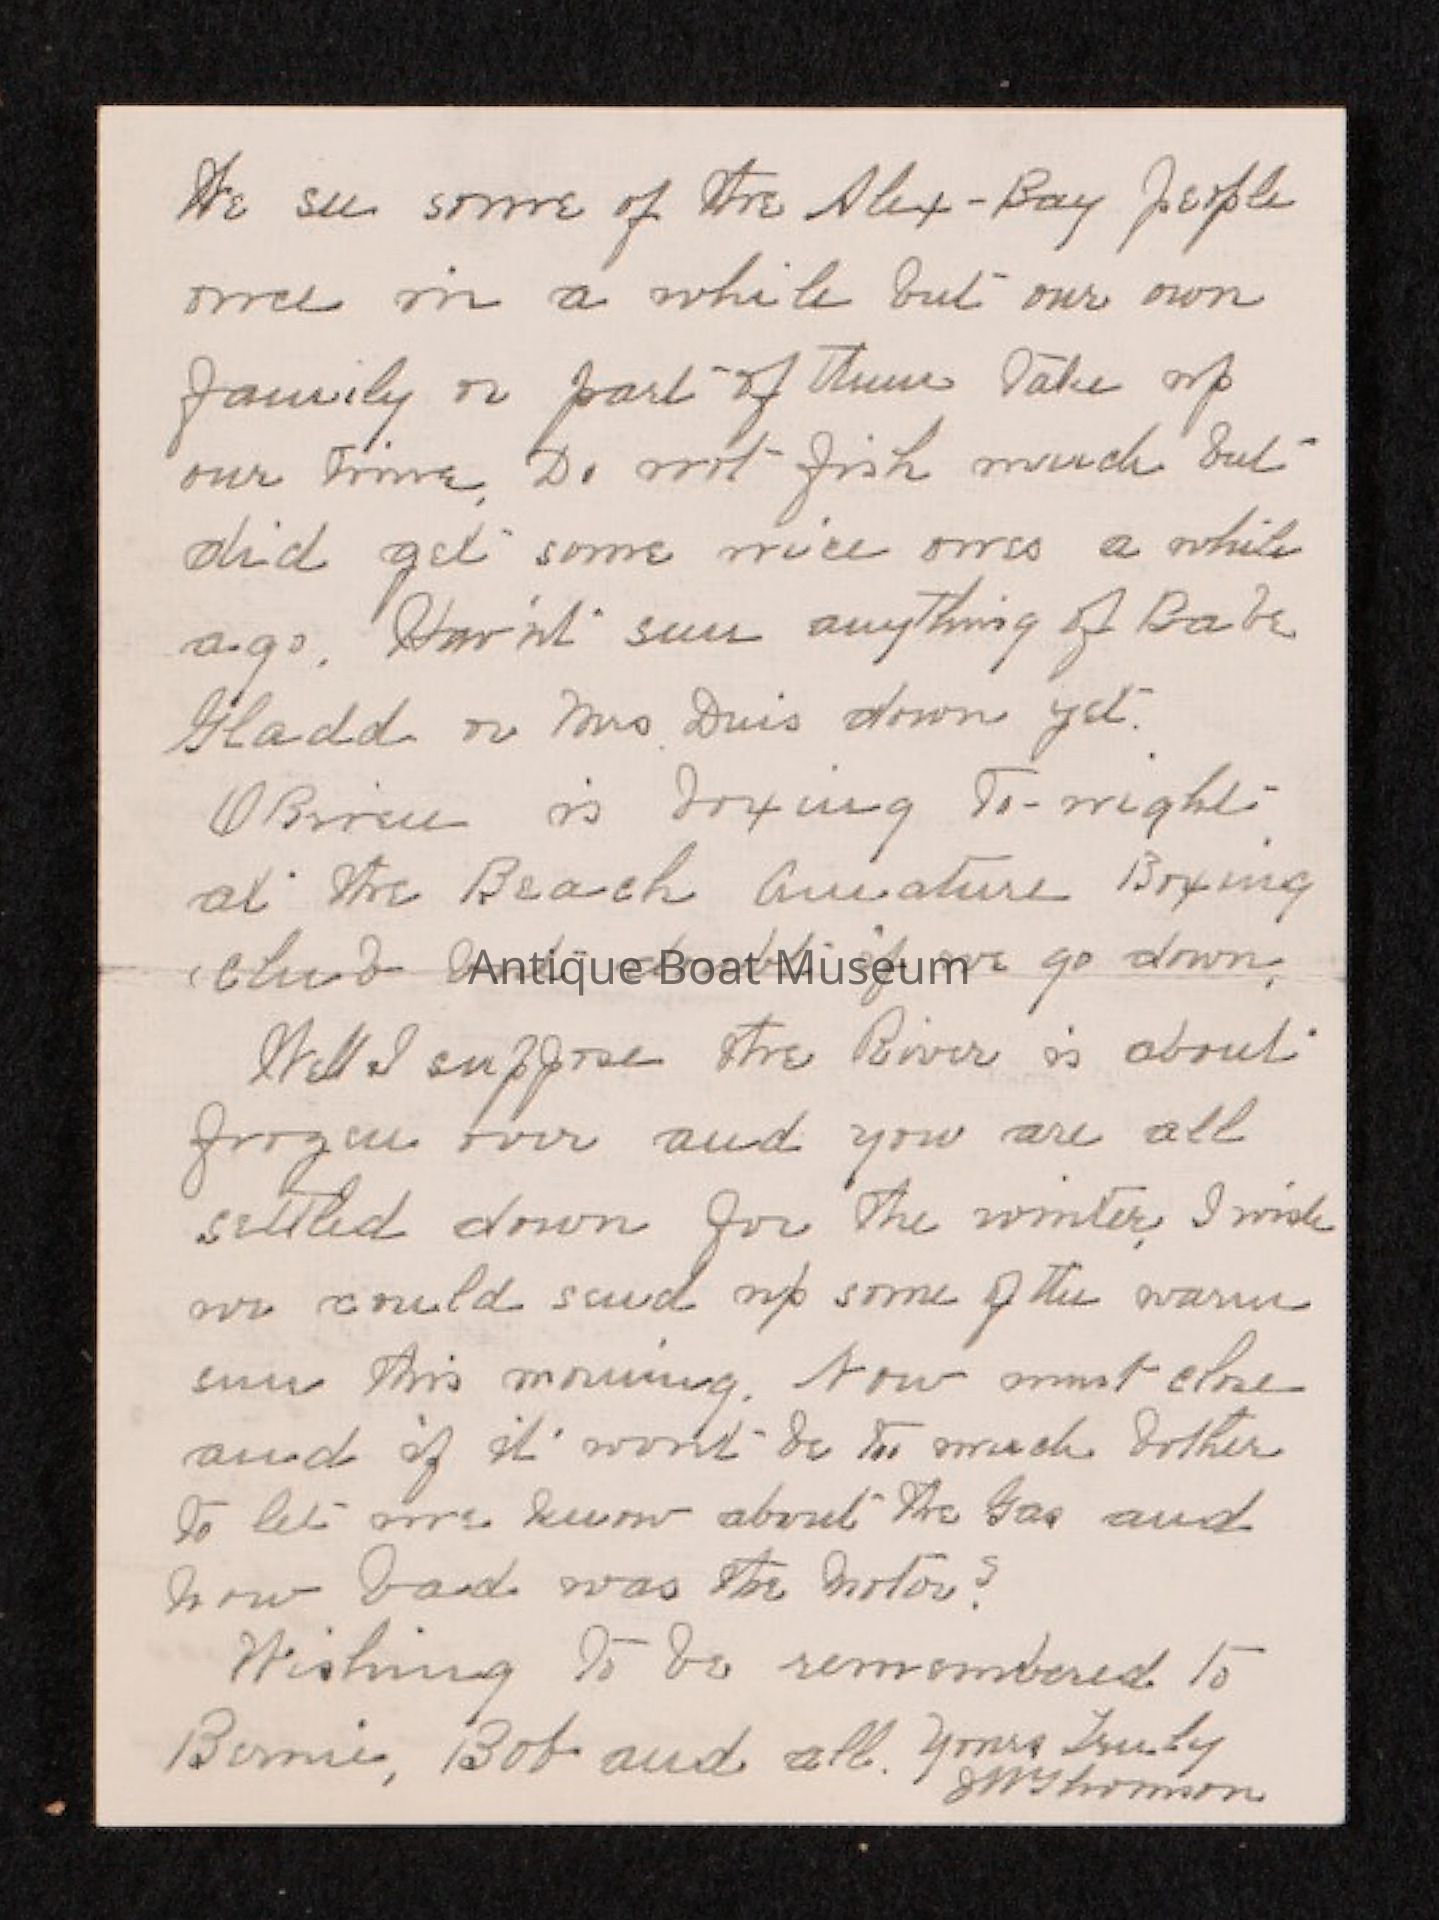 We see some of the Alex-Bay people
once in a while but our own
family or part of them take up
our time. Do not fish much but
did get some nice ones a while
ago. Hav'nt seen anything of Babe
Gladd or Mrs. Duis down yet.
OBrien is boxing to-night
at the Beach Amature Boxing
club but doubt if we go down.
Antique Boat Museum
Well I suppose the River is about
frozen over and you are all
settled down for the winter, I wish
we could send up some of the warm
sun this morning. Now must close
and if it wont be too much bother
to let me know about the Gas and
how bad was the Motor?
Wishing to be remembered to
Bernie, Bob and all. Yours Truly
JWThomson